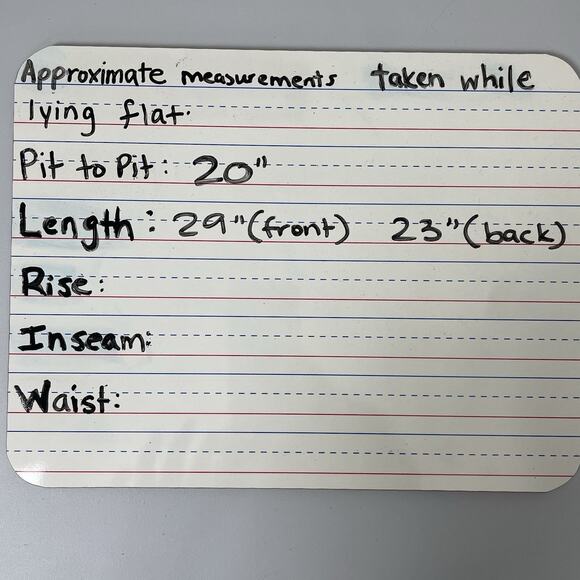 Approximate measurements taken while
lying flat.
Pit to Pit: 20"
Length: 29"(front) 23"(back)
Rise:
Inseam:
Waist: